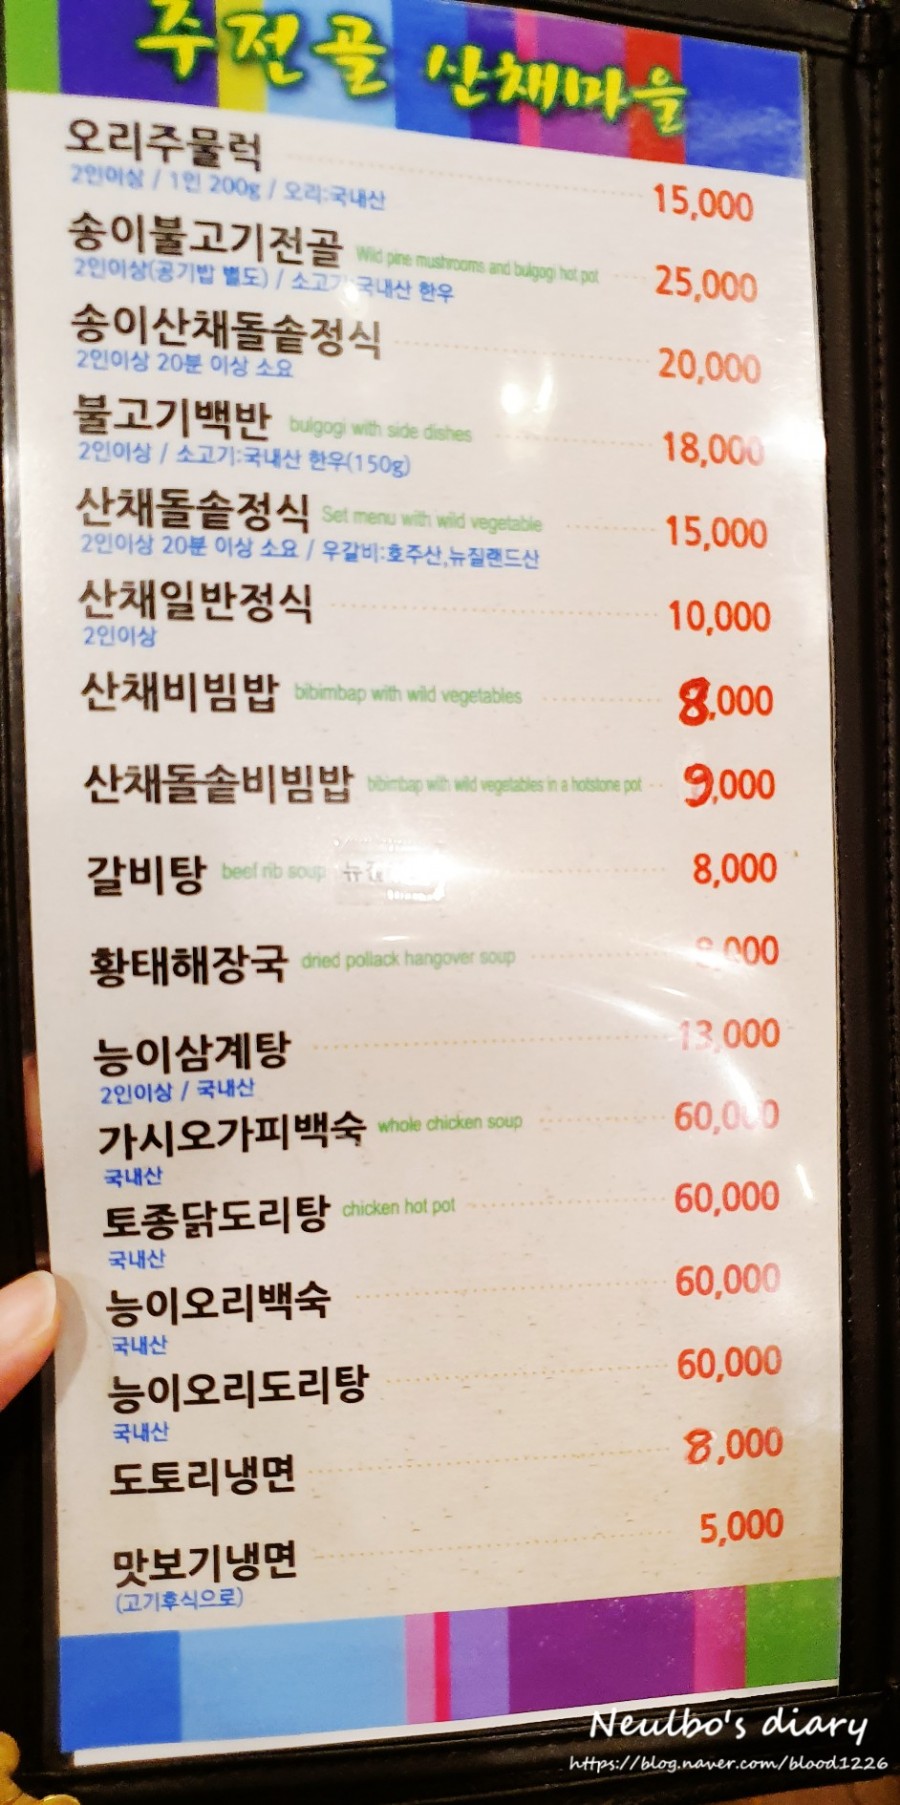 주전골 산채마을
오리주물럭 15,000
2인이상 / 1인 200g / 오리:국내산
송이불고기전골 Wild pine mushrooms and bulgogi hot pot 25,000
2인이상(공기밥 별도) / 소고기:국내산 한우
송이산채돌솥정식 20,000
2인이상 20분 이상 소요
불고기백반 bulgogi with side dishes 18,000
2인이상 / 소고기:국내산 한우(150g)
산채돌솥정식 Set menu with wild vegetable 15,000
2인이상 20분 이상 소요 / 우갈비:호주산,뉴질랜드산
산채일반정식 10,000
2인이상
산채비빔밥 bibimbap with wild vegetables 8,000
산채돌솥비빔밥 bibimbap with wild vegetables in a hotstone pot 9,000
갈비탕 beef rib soup 8,000
황태해장국 dried pollack hangover soup 8,000
능이삼계탕 13,000
2인이상 / 국내산
가시오가피백숙 whole chicken soup 60,000
국내산
토종닭도리탕 chicken hot pot 60,000
국내산
능이오리백숙 60,000
국내산
능이오리도리탕 60,000
국내산
도토리냉면 8,000
맛보기냉면 5,000
(고기후식으로)
Neulbo's diary
https://blog.naver.com/blood1226